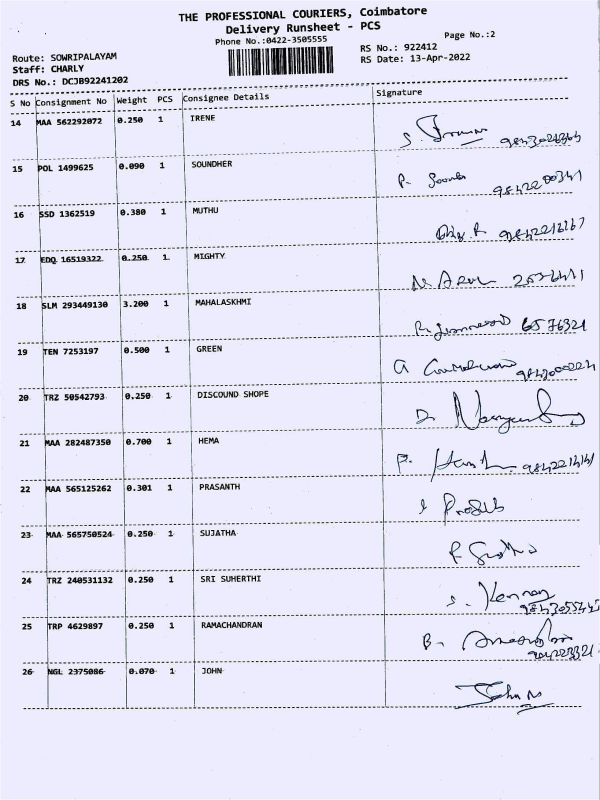 THE PROFESSIONAL COURIERS, Coimbatore
Delivery Runsheet - PCS
Page No.:2
Phone No.:0422-3505555
RS No.: 922412
Route: SOWRIPALAYAM
RS Date: 13-Apr-2022
Staff: CHARLY
DRS No.: DCJB92241202
S No Consignment No Weight PCS Consignee Details Signature
14 MAA 562292072 0.250 1 IRENE
15 POL 1499625 0.090 1 SOUNDHER
16 SSD 1362519 0.380 1 MUTHU
17 EDQ 16519322 0.250 1 MIGHTY
18 SLM 293449130 3.200 1 MAHALASKHMI 6576321
19 TEN 7253197 0.500 1 GREEN
20 TRZ 50542793 0.250 1 DISCOUND SHOPE
21 MAA 282487350 0.700 1 HEMA
22 MAA 565125262 0.301 1 PRASANTH
23 MAA 565750524 0.250 1 SUJATHA
24 TRZ 240531132 0.250 1 SRI SUHERTHI
25 TRP 4629897 0.250 1 RAMACHANDRAN
26 NGL 2375086 0.070 1 JOHN